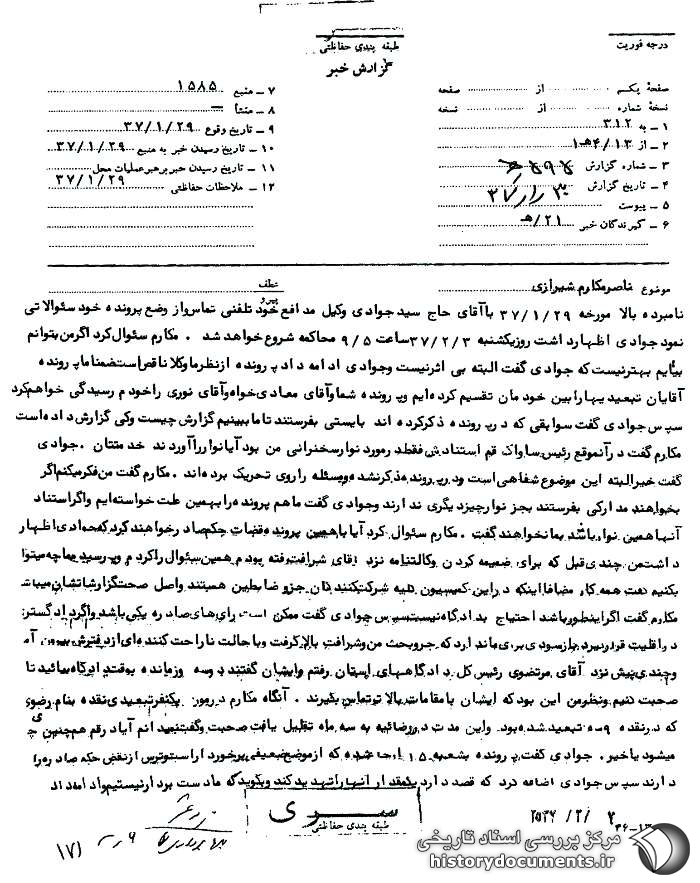 درجه فوریت
طبقه بندی حفاظتی
گزارش خبر
صفحهٔ یکم از صفحه
نسخهٔ شماره از نسخه
۱ ـ به ۳۱۲
۲ ـ از ۴/۱۳هـ۱
۳ ـ شماره گزارش
۴ ـ تاریخ گزارش
۵ ـ پیوست
۶ ـ گیرندگان خبر ۲۱/هـ
۷ ـ منبع ۱۵۸۵
۸ ـ منشأ ـ
۹ ـ تاریخ وقوع ۳۷/۱/۲۹
۱۰ ـ تاریخ رسیدن خبر به منبع ۳۷/۱/۲۹
۱۱ ـ تاریخ رسیدن خبر برهبر عملیات محل
۱۲ ـ ملاحظات حفاظتی ۳۷/۱/۲۹
موضوع ناصر مکارم شیرازی عطف
پیرو
نامبرده بالا مورخه ۳۷/۱/۲۹ با آقای حاج سید جوادی وکیل مدافع خود تلفنی تماس و از وضع پرونده خود سئوالاتی
نمود جوادی اظهار داشت روز یکشنبه ۳۷/۲/۳ ساعت ۹/۵ محاکمه شروع خواهد شد . مکارم سئوال کرد اگر من بتوانم
بیایم بهتر نیست که جوادی گفت البته بی اثر نیست وجوادی ادامه داد پرونده از نظر ما وکلا ناقص است ضمنا ما پرونده
آقایان تبعیدیها را بین خودمان تقسیم کرده ایم و پرونده شما و آقای معادیخواه و آقای نوری را خودم رسیدگی خواهم کرد
سپس جوادی گفت سوابقی که در پرونده ذکر کرده اند بایستی بفرستند تا ما ببینیم گزارش چیست وکی گزارش داده است
مکارم گفت در آنموقع رئیس ساواک قم استنادش فقط در مورد نوار سخنرانی من بود آیا نوار را آوردند خدمتتان . جوادی
گفت خیر البته این موضوع شفاهی است و در پرونده ذکر نشده ومسئله را روی تحریک برده اند . مکارم گفت من فکر میکنم اگر
بخواهند مدارکی بفرستند بجز نوار چیز دیگری ندارند وجوادی گفت ما هم پرونده را بهمین علت خواسته ایم و اگر استناد
آنها همین نوار باشد بما نخواهند گفت . مکارم سئوال کرد آیا با همین پرونده قضات حکم صادر خواهند کرد که جوادی اظهار
داشت من چندی قبل که برای ضمیمه کردن وکالتنامه نزد آقای شرافت رفته بودم همین سئوال را کردم و پرسیدم بما چه میتوا
بکنیم گفت همه کار مضافا اینکه در این کمیسیون کلیه شرکت کنندگان جزو ضابطین هستند و اصل صحت گزارشاتشان میباشد
مکارم گفت اگر اینطور باشد احتیاج به دادگاه نیست سپس جوادی گفت ممکن است رای های صادره یکی باشد واگر دادگستری
در اقلیت قرار گیرد باز سودی برای ما ندارد که جر و بحث من و شرافت بالا گرفت و با حالت ناراحت کننده ای از دفترش بیرون آمدم
وچندی پیش نزد آقای مرتضوی رئیس کل دادگاههای استان رفتم وایشان گفتند دو سه روز مانده بوقت دادگاه بیائید تا
صحبت کنیم و نظر من این بود که ایشان با مقامات بالاتر تماس بگیرند . آنگاه مکارم در مورد یکنفر تبعیدی نقده بنام رضوی
که در نقده ۳ ماه تبعید شده بود. و این مدت در رضائیه به سه ماه تقلیل یافت صحبت و گفت نمیدانم آیا در قم همچنین چ
میشود یا خیر. جوادی گفت پرونده بشعبه ۱۵ ارجاع شده که از موضع ضعیفی برخوردار است و ترس از نقض حکم صادره را
دارند سپس جوادی اضافه کرد که قصد دارد یکمقدار آنها را تهدید کند و بگوید که ما دست بردار نیستیم و ادامه داد
سری
طبقه بندی حفاظتی
۲۵۳۷/۲/۲
۳۶-۱۳
۱۷۱
مرکز بررسی اسناد تاریخی
historydocuments.ir